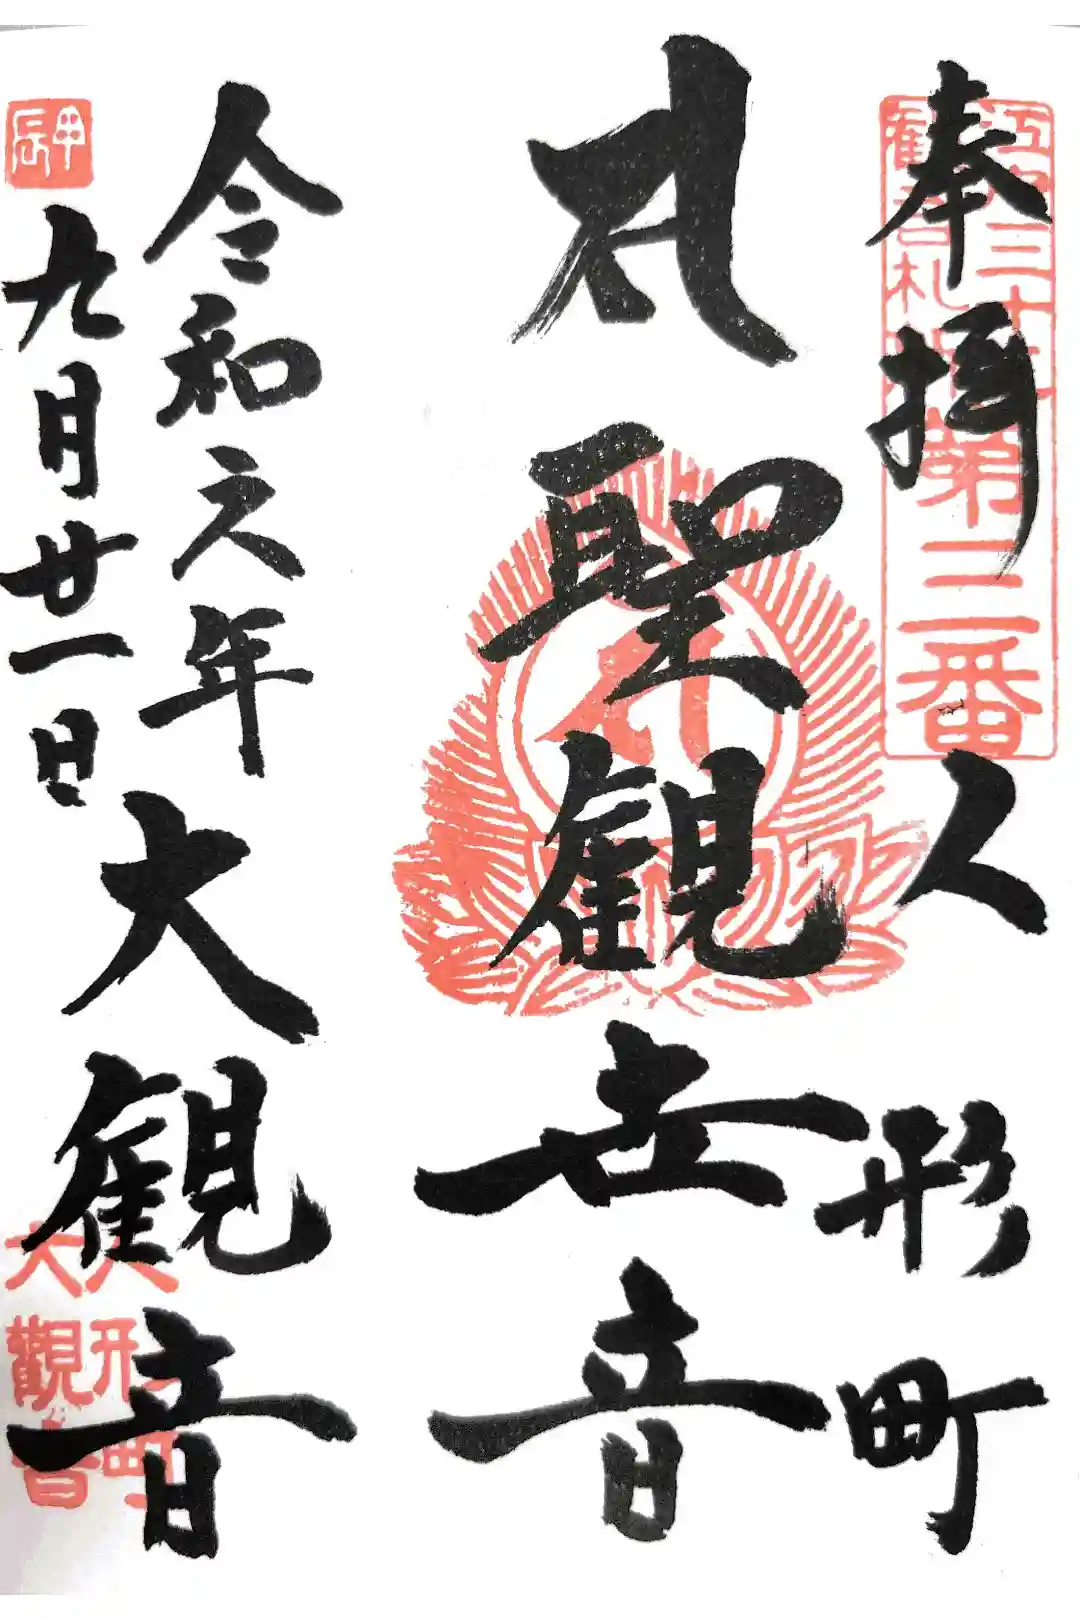 奉拝
人形町
江戸三十三
観音札所第三番
聖観世音
令和元年
九月廿一日
大観音
人形町
大觀音